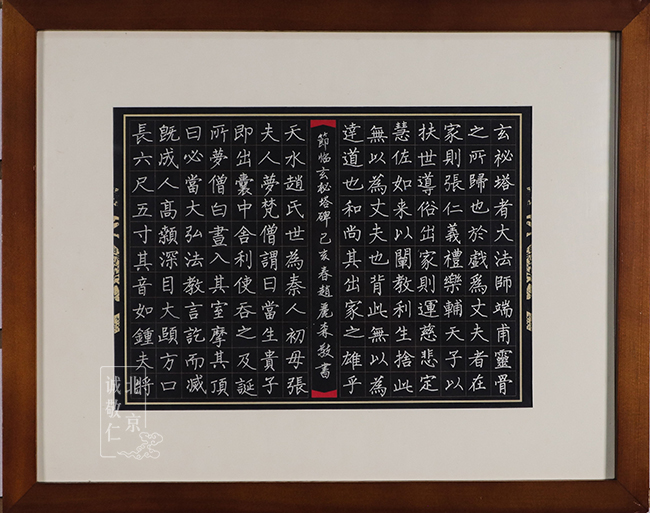 玄祕塔者大法師端甫靈骨
之所歸也於戲為丈夫者在
家則張仁義禮樂輔天子以
扶世導俗出家則運慈悲定
慧佐如来以闡教利生捨此
無以為丈夫也背此無以為
達道也和尚其出家之雄乎
節临玄秘塔碑己亥春趙麗森敬書
天水趙氏世為秦人初母張
夫人夢梵僧謂曰當生貴子
即出囊中舍利使吞之及誕
所夢僧白晝入其室摩其頂
曰必當大弘法教言訖而滅
旣成人髙顙深目大頤方口
長六尺五寸其音如鍾夫將
北京
诚敬仁